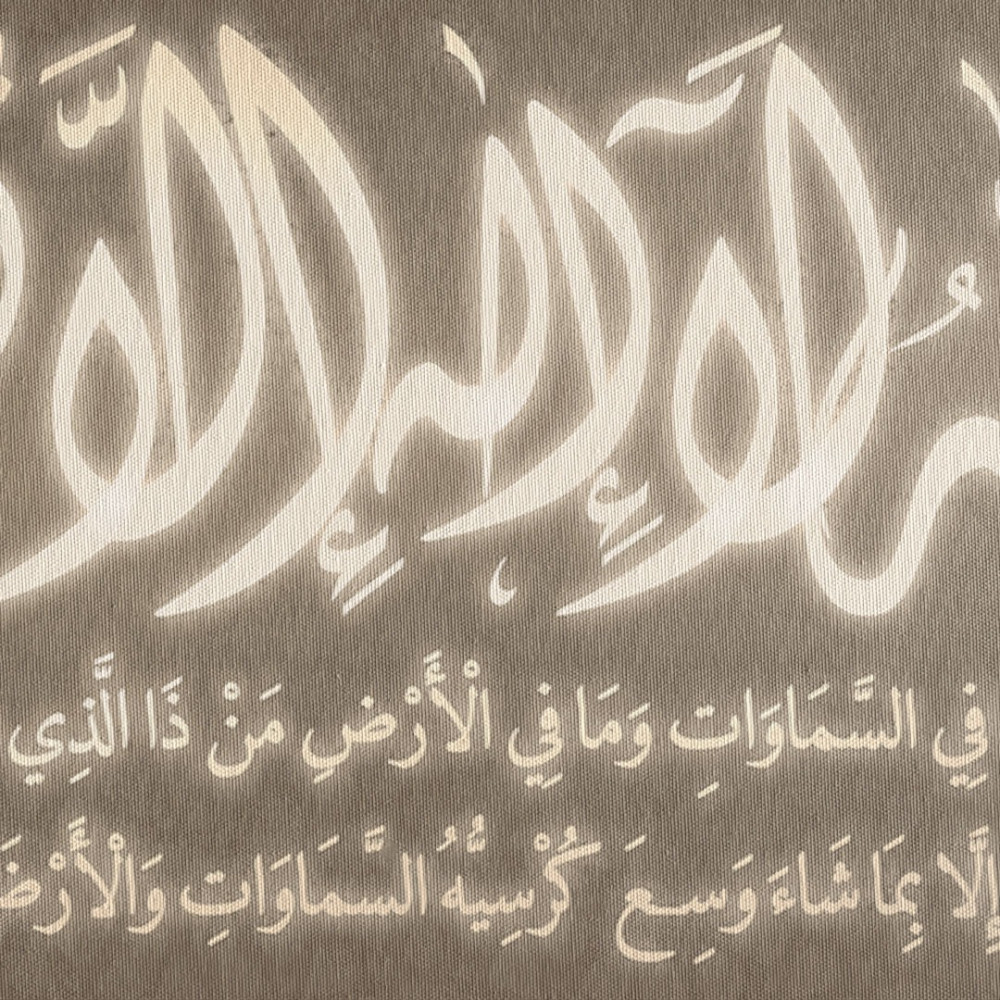 لَآ إِلَٰهَ إِلَّا
فِي السَّمَاوَاتِ وَمَا فِي الْأَرْضِ مَنْ ذَا الَّذِي
إِلَّا بِمَا شَاءَ وَسِعَ كُرْسِيُّهُ السَّمَاوَاتِ وَالْأَرْضَ